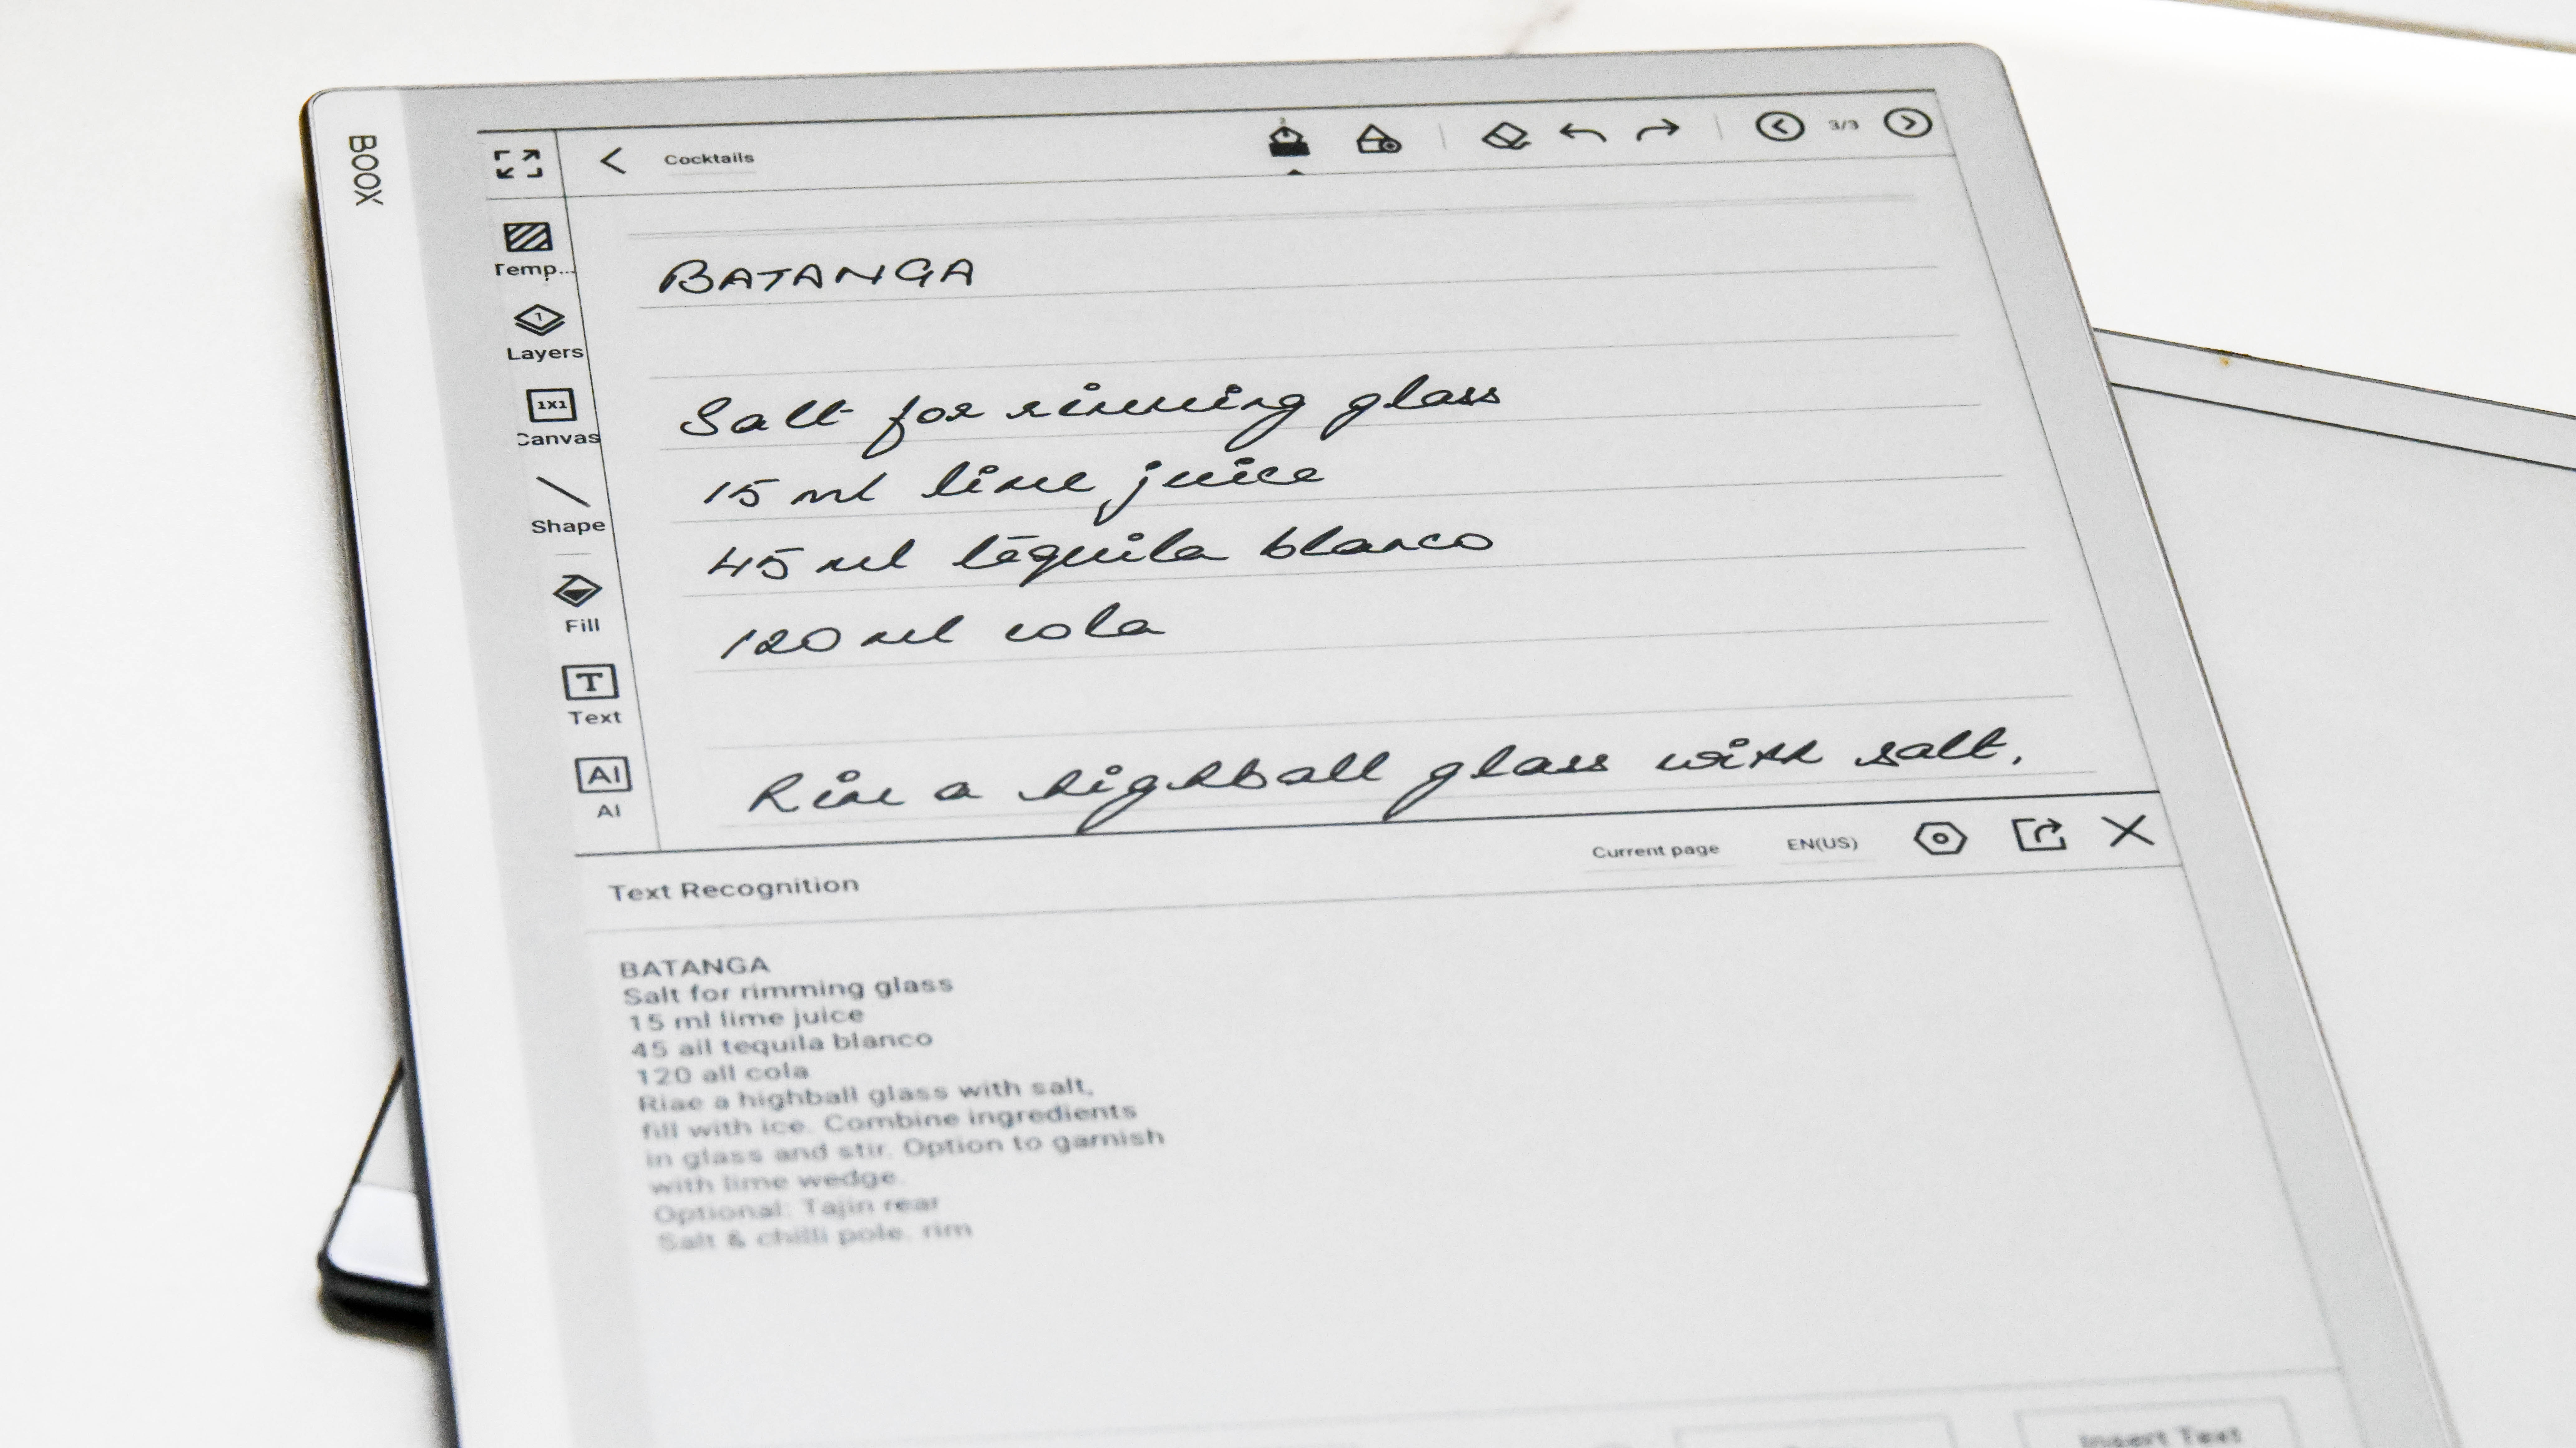 BOOX
Cocktails
3/3
Temp...
Layers
1X1
Canvas
Shape
Fill
T
Text
AI
AI
BATANGA
Salt for rimming glass
15 ml lime juice
45 ml tequila blanco
120 ml cola
Rim a highball glass with salt,
Current page
EN(US)
Text Recognition
BATANGA
Salt for rimming glass
15 ml lime juice
45 ail tequila blanco
120 all cola
Riae a highball glass with salt,
fill with ice. Combine ingredients
in glass and stir. Option to garnish
with lime wedge.
Optional: Tajin rear
Salt & chilli pole. rim
Insert Text